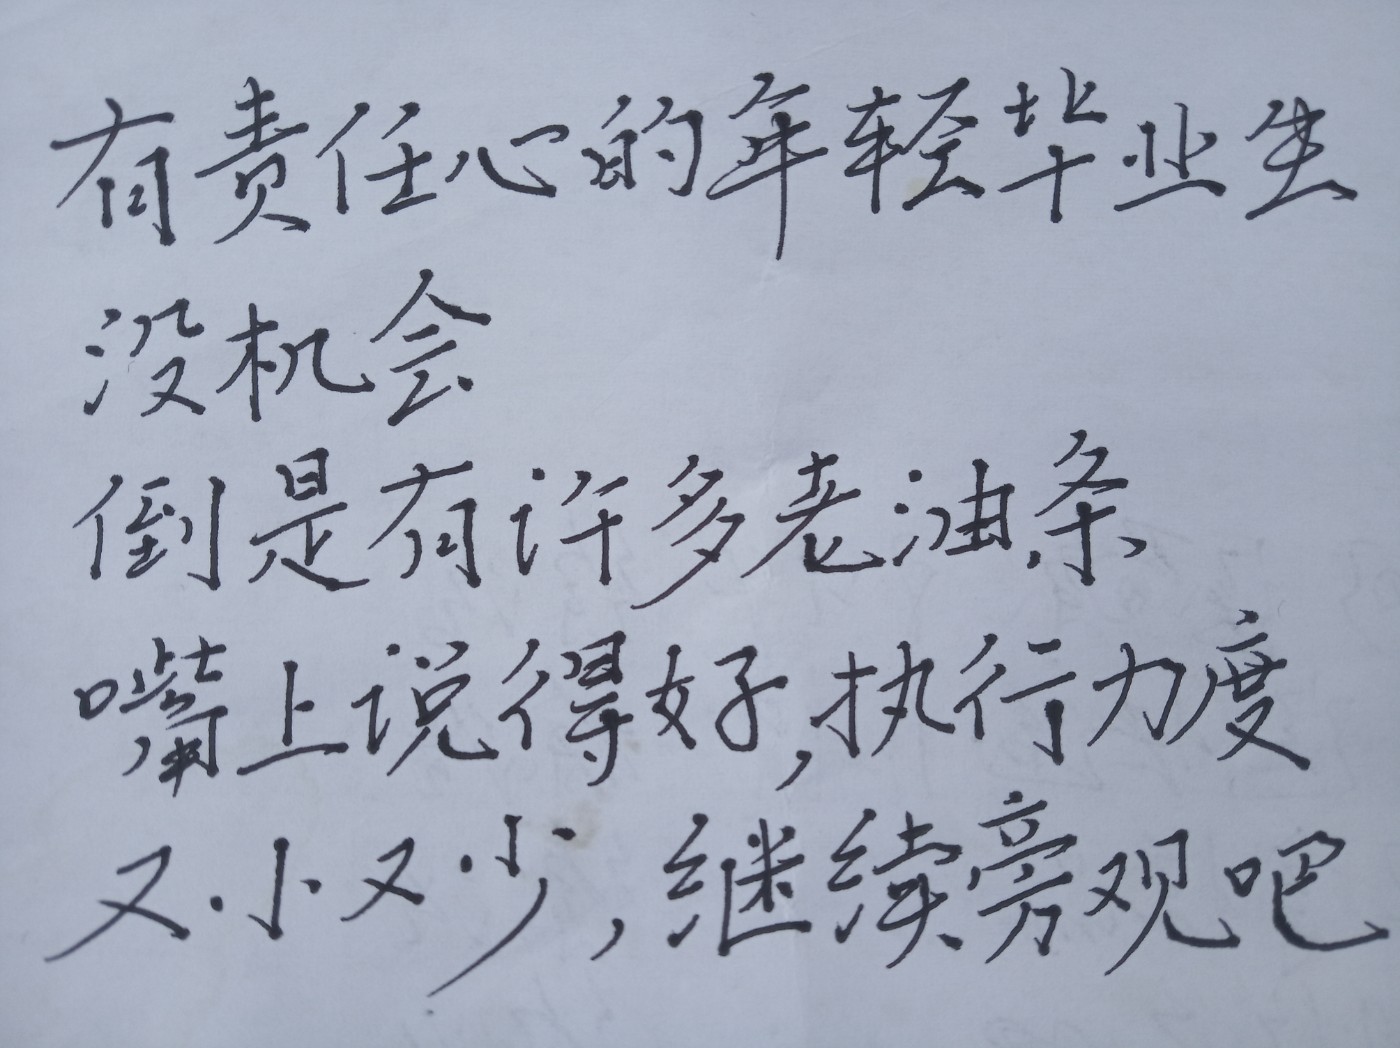 有责任心的年轻毕业生
没机会
倒是有许多老油条
嘴上说得好,执行力度
又小又少,继续旁观吧